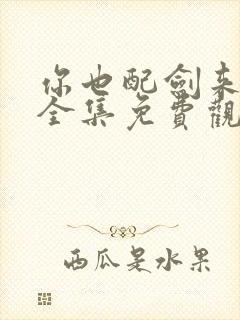 你也配劍来
全集免費觀
西瓜是水果